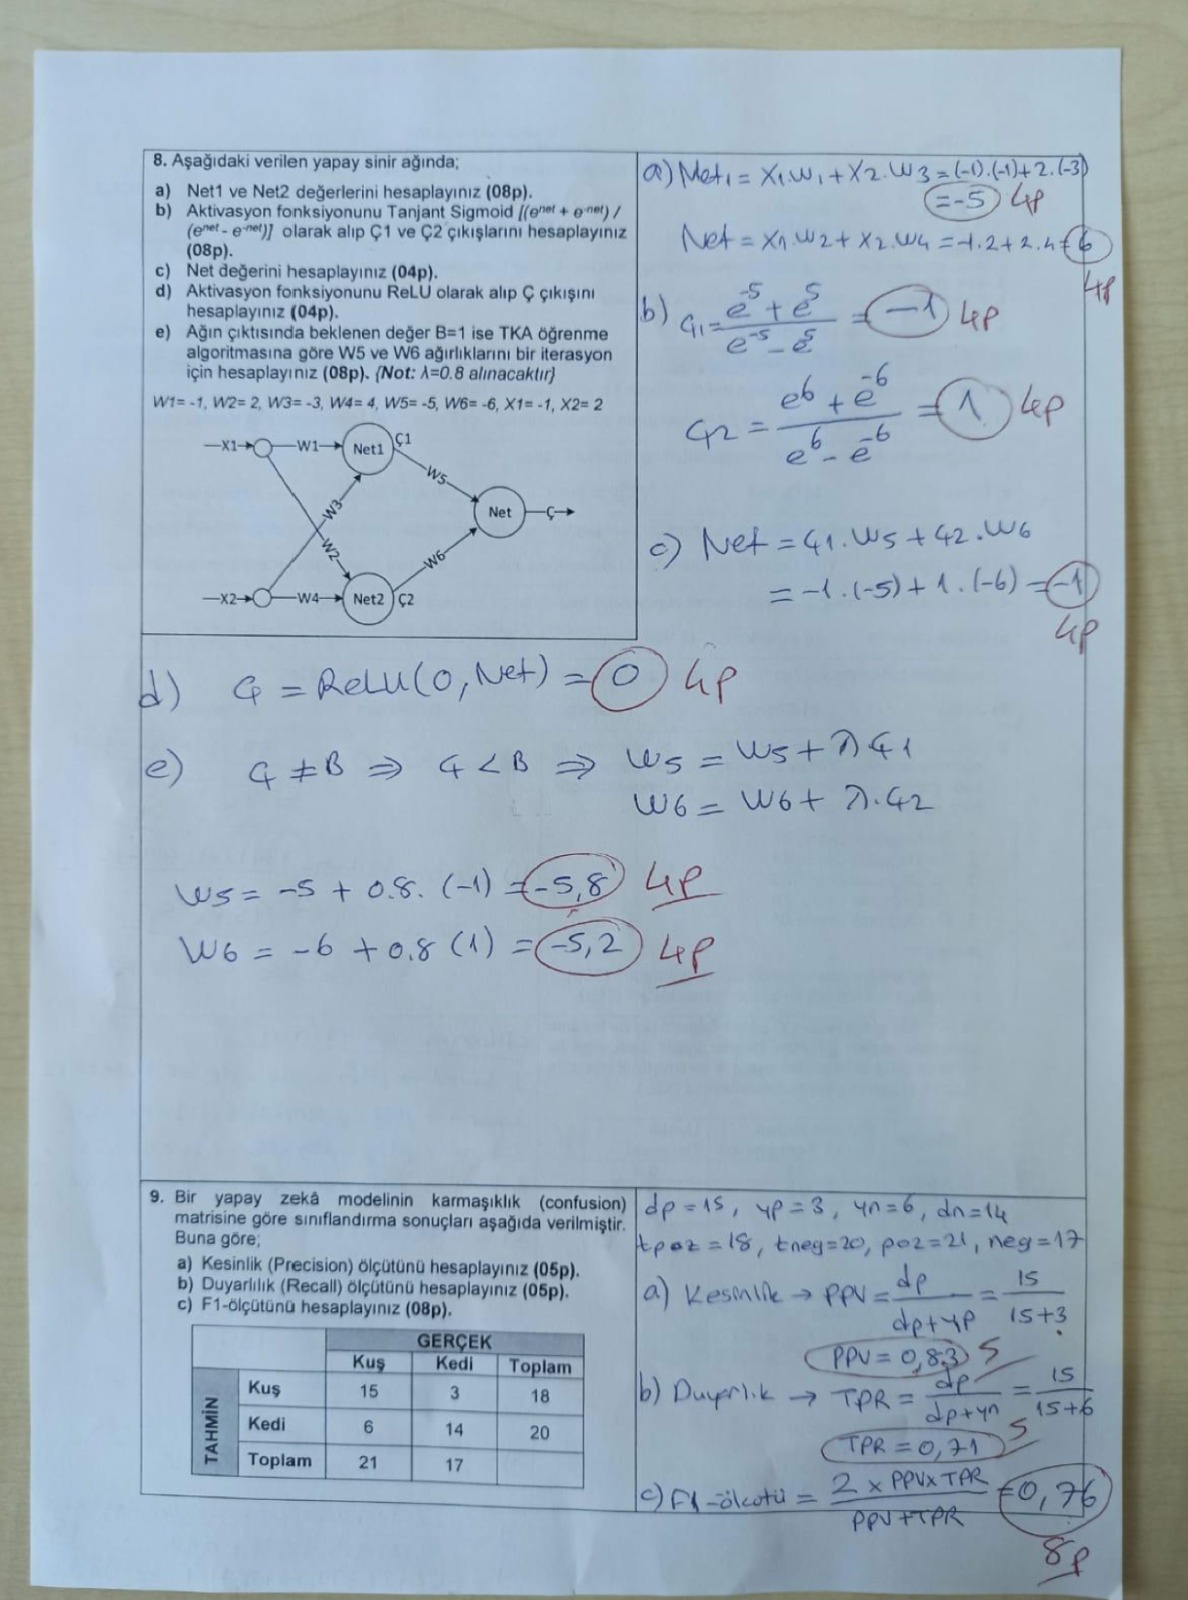 8. Aşağıdaki verilen yapay sinir ağında;
a) Net1 ve Net2 değerlerini hesaplayınız (08p).
b) Aktivasyon fonksiyonunu Tanjant Sigmoid [(e^net + e^-net) /
(e^net - e^-net)] olarak alıp Ç1 ve Ç2 çıkışlarını hesaplayınız
(08p).
c) Net değerini hesaplayınız (04p).
d) Aktivasyon fonksiyonunu ReLU olarak alıp Ç çıkışını
hesaplayınız (04p).
e) Ağın çıktısında beklenen değer B=1 ise TKA öğrenme
algoritmasına göre W5 ve W6 ağırlıklarını bir iterasyon
için hesaplayınız (08p). {Not: λ=0.8 alınacaktır}
W1= -1, W2= 2, W3= -3, W4= 4, W5= -5, W6= -6, X1= -1, X2= 2
X1 W1 Net1 Ç1
W5
W3
Net Ç
W2
W6
X2 W4 Net2 Ç2
a) Net1 = X1.W1 + X2.W3 = (-1).(-1)+2.(-3)
= -5 4p
Net = X1.W2 + X2.W4 = -1.2+2.4=6
4p
b) Ç1 = (e^-5 + e^5) / (e^-5 - e^5) = -1 4p
Ç2 = (e^6 + e^-6) / (e^6 - e^-6) = 1 4p
c) Net = Ç1.W5 + Ç2.W6
= -1.(-5) + 1.(-6) = -1
4p
d) Ç = ReLU(0, Net) = 0 4p
e) Ç ≠ B ⇒ Ç < B ⇒ W5 = W5 + λÇ1
W6 = W6 + λ.Ç2
W5 = -5 + 0.8.(-1) = -5,8 4p
W6 = -6 + 0.8(1) = -5,2 4p
9. Bir yapay zekâ modelinin karmaşıklık (confusion)
matrisine göre sınıflandırma sonuçları aşağıda verilmiştir.
Buna göre;
a) Kesinlik (Precision) ölçütünü hesaplayınız (05p).
b) Duyarlılık (Recall) ölçütünü hesaplayınız (05p).
c) F1-ölçütünü hesaplayınız (08p).
GERÇEK
Kuş Kedi Toplam
TAHMİN
Kuş 15 3 18
Kedi 6 14 20
Toplam 21 17
dp = 15, yp = 3, yn = 6, dn = 14
tpoz = 18, tneg=20, poz=21, neg=17
a) Kesinlik → PPV = dp / (dp+yp) = 15 / (15+3)
PPV = 0,83 5
b) Duyarlık → TPR = dp / (dp+yn) = 15 / (15+6)
TPR = 0,71 5
c) F1-ölcütü = (2 x PPV x TPR) / (PPV + TPR) = 0,76
8p